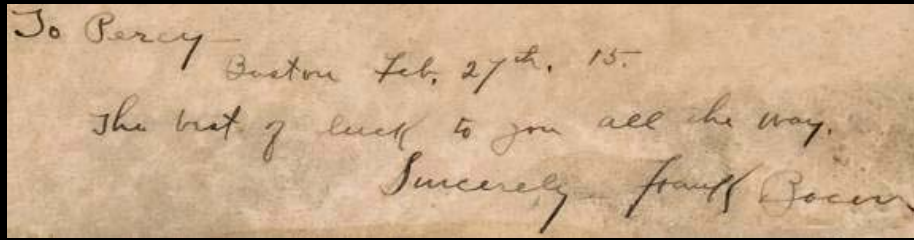 To Percy
Boston Feb. 27th. 15.
The best of luck to you all the way.
Sincerely Frank Bacon